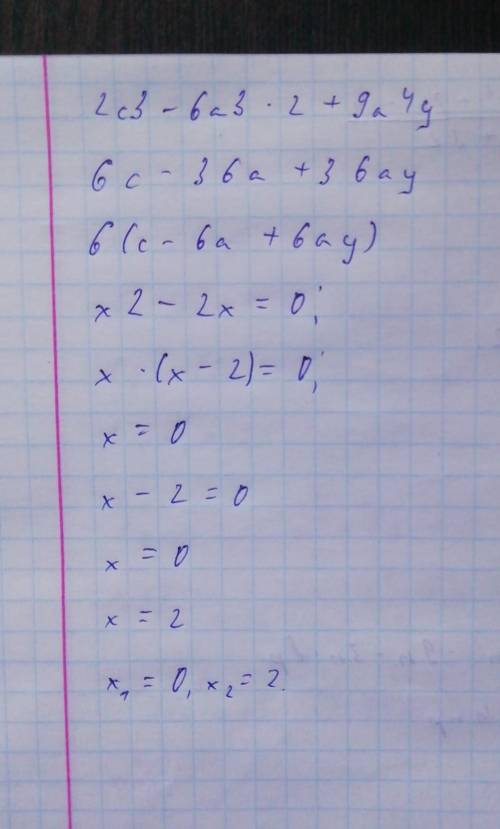 2c3 - 6a3 · 2 + 9a4y
6c - 36a + 36ay
6(c - 6a + 6ay)
x2 - 2x = 0;
x · (x - 2) = 0;
x = 0
x - 2 = 0
x = 0
x = 2
x₁ = 0, x₂ = 2.